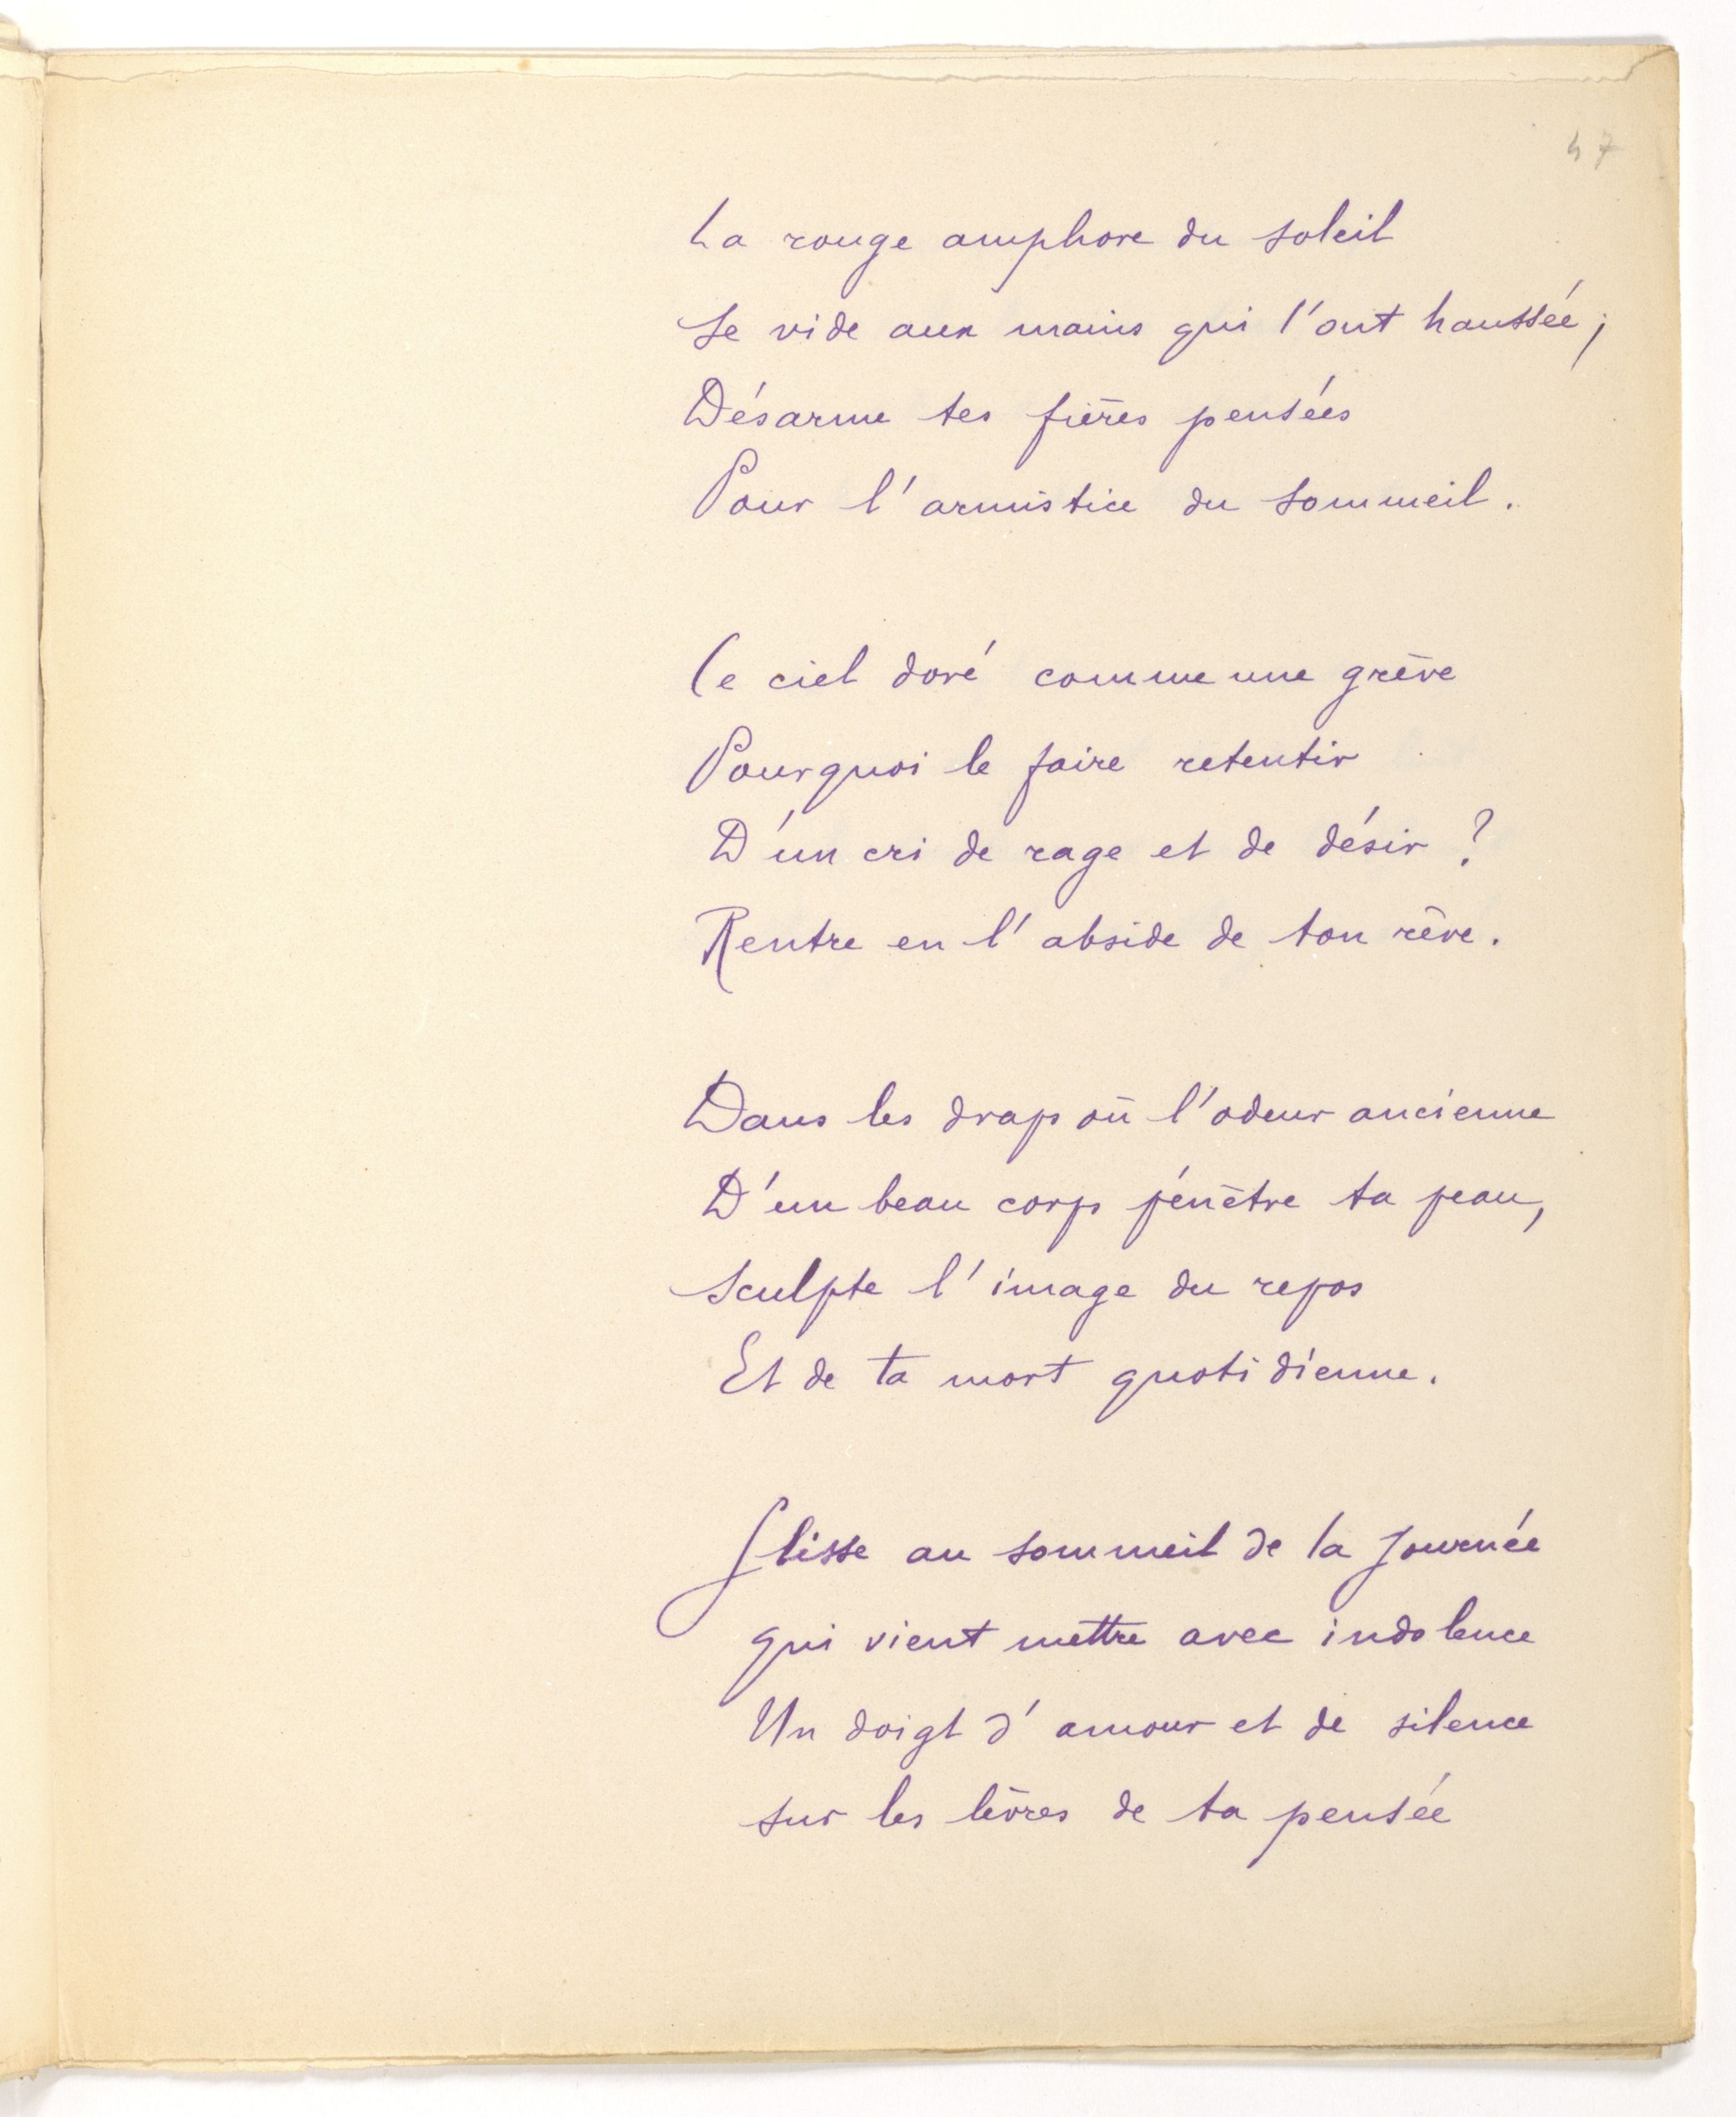 47
La rouge amphore du soleil
Se vide aux mains qui l'ont haussée ;
Désarme tes fières pensées
Pour l'armistice du sommeil.
Le ciel doré comme une grève
Pourquoi le faire retentir
D'un cri de rage et de désir ?
Rentre en l'abside de ton rêve.
Dans les draps où l'odeur ancienne
D'un beau corps pénètre ta peau,
Sculpte l'image du repos
Et de ta mort quotidienne.
Glisse au sommeil de la Journée
qui vient mettre avec indolence
Un doigt d'amour et de silence
sur les lèvres de ta pensée